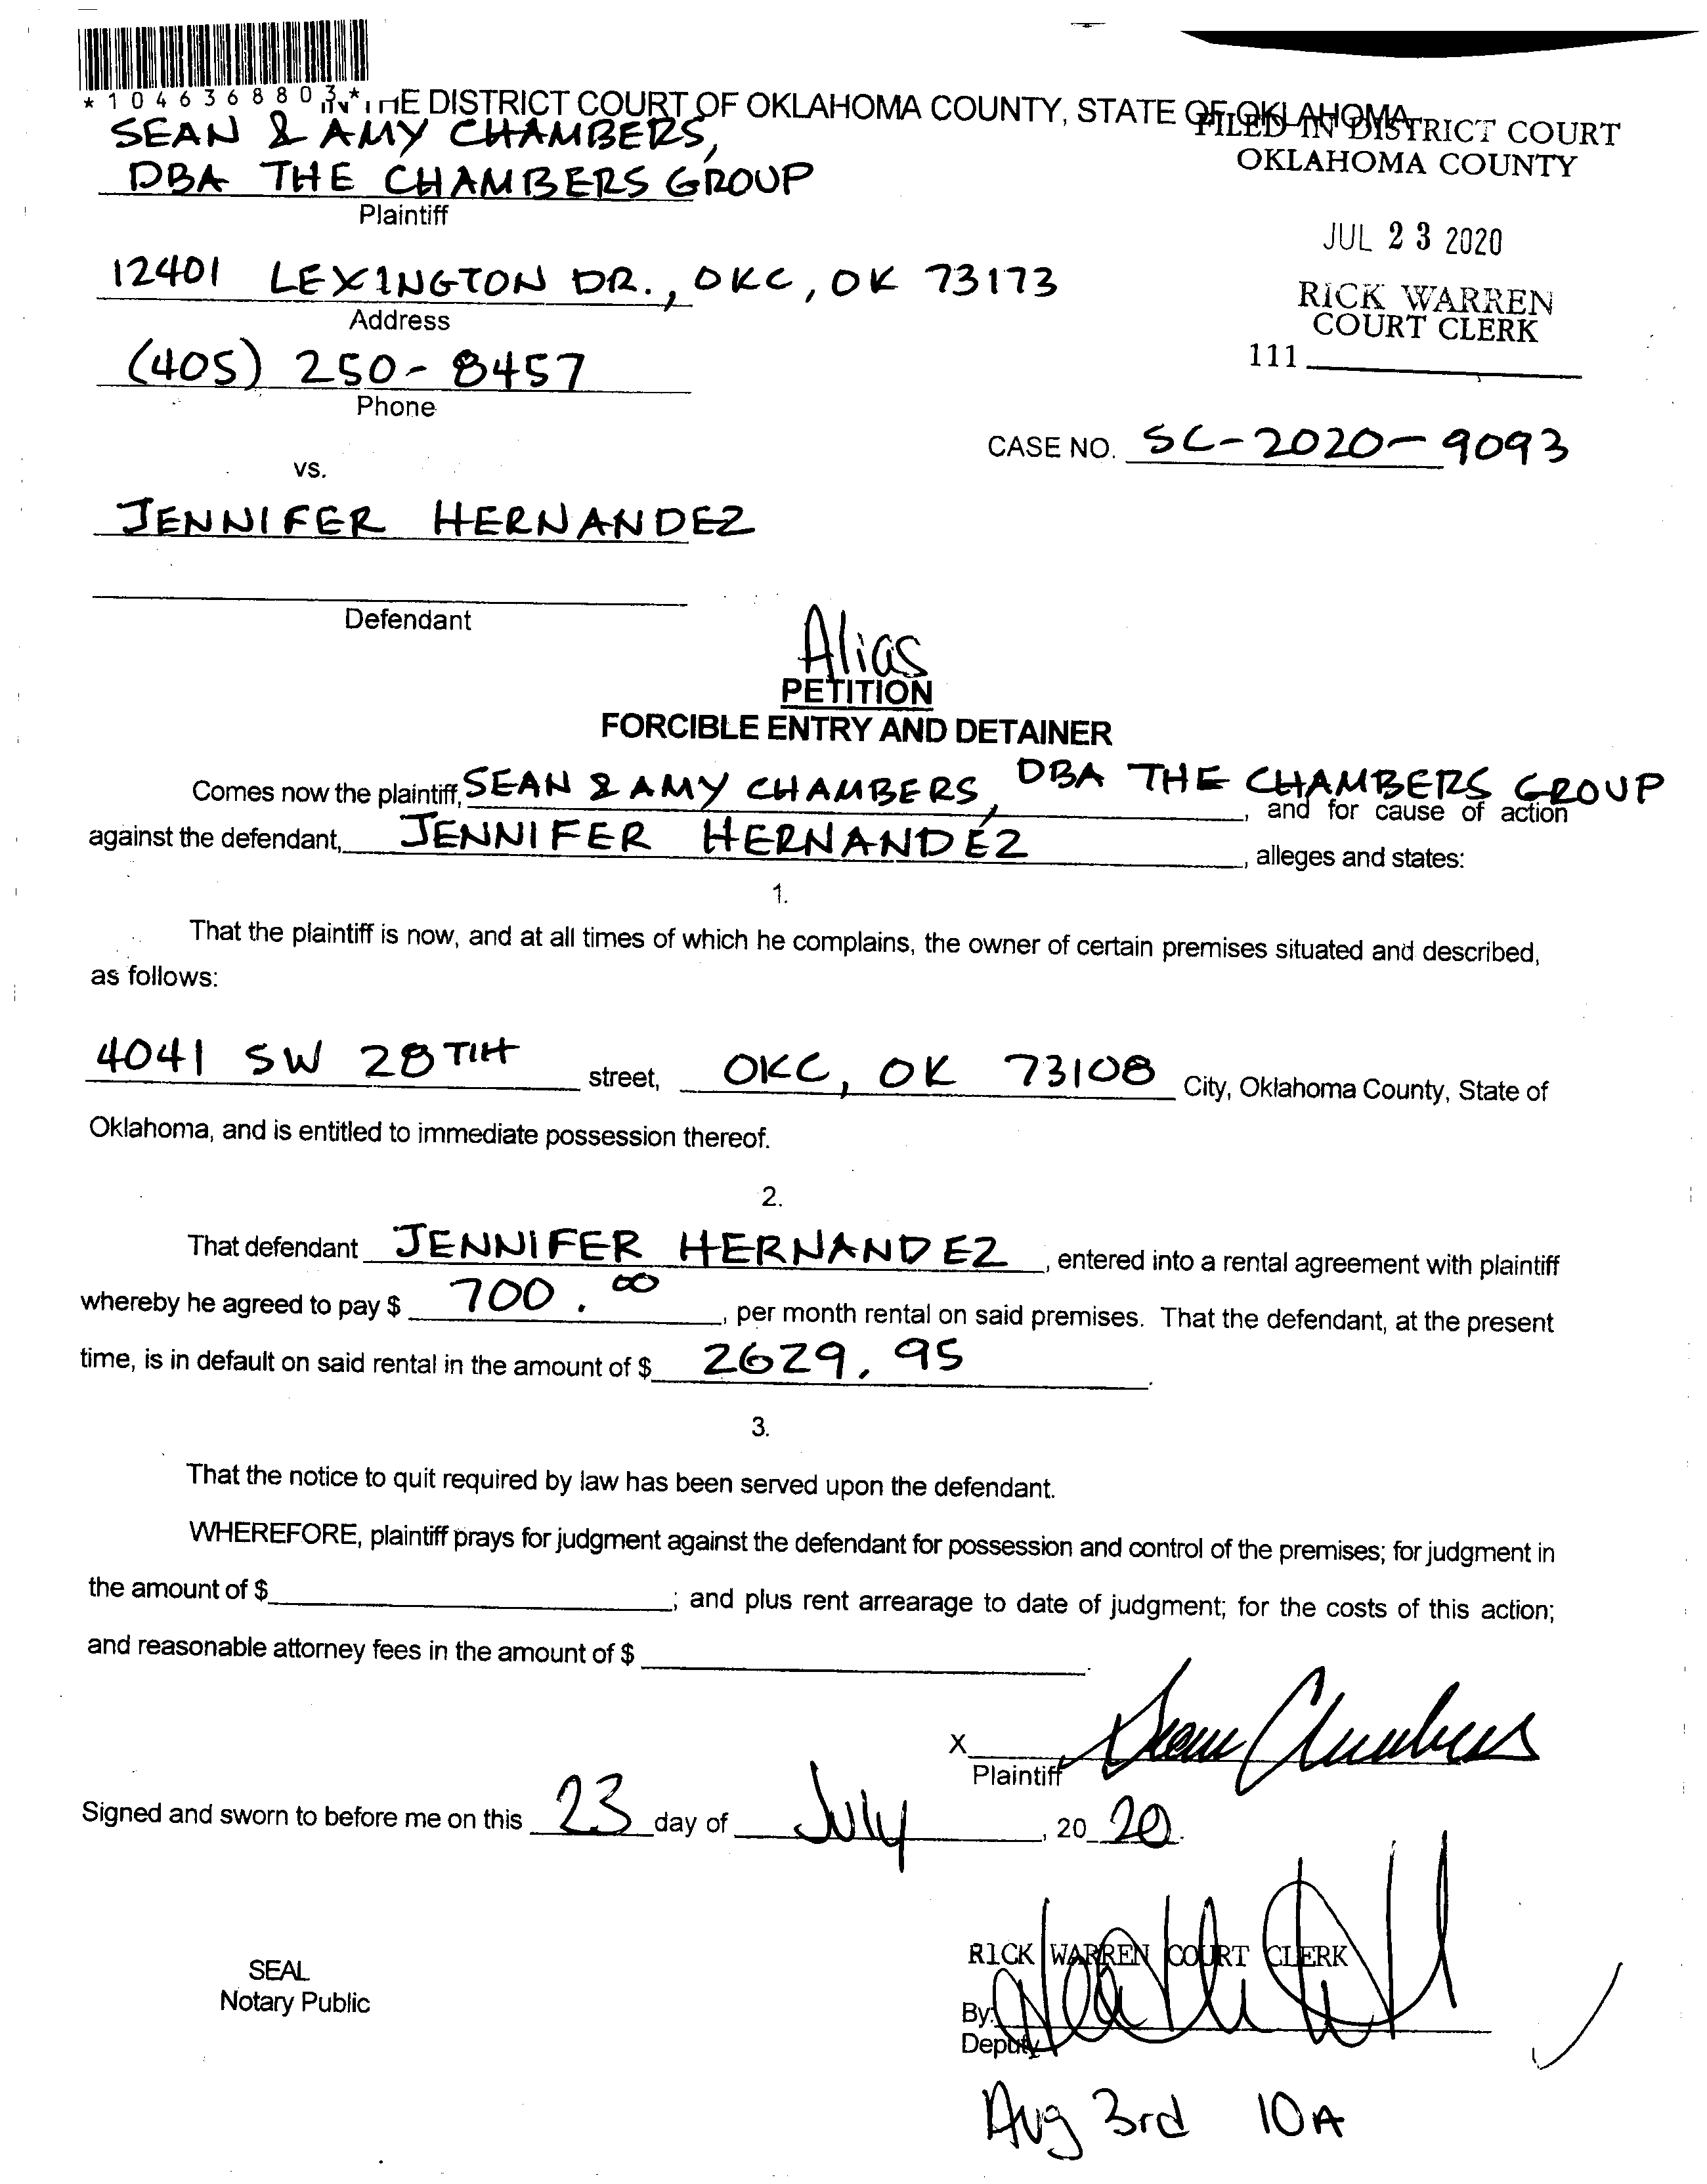 *1046368803*
IN THE DISTRICT COURT OF OKLAHOMA COUNTY, STATE OF OKLAHOMA
FILED IN DISTRICT COURT
OKLAHOMA COUNTY
JUL 23 2020
RICK WARREN
COURT CLERK
111
SEAN & AMY CHAMBERS,
DBA THE CHAMBERS GROUP
Plaintiff
12401 LEXINGTON DR., OKC, OK 73173
Address
(405) 250-8457
Phone
CASE NO. SC-2020-9093
vs.
JENNIFER HERNANDEZ
Defendant
Alias
PETITION
FORCIBLE ENTRY AND DETAINER
Comes now the plaintiff, SEAN & AMY CHAMBERS, DBA THE CHAMBERS GROUP, and for cause of action
against the defendant, JENNIFER HERNANDEZ, alleges and states:
1.
That the plaintiff is now, and at all times of which he complains, the owner of certain premises situated and described,
as follows:
4041 SW 28TH street, OKC, OK 73108 City, Oklahoma County, State of
Oklahoma, and is entitled to immediate possession thereof.
2.
That defendant JENNIFER HERNANDEZ, entered into a rental agreement with plaintiff
whereby he agreed to pay $ 700.00, per month rental on said premises. That the defendant, at the present
time, is in default on said rental in the amount of $ 2629.95.
3.
That the notice to quit required by law has been served upon the defendant.
WHEREFORE, plaintiff prays for judgment against the defendant for possession and control of the premises; for judgment in
the amount of $ ; and plus rent arrearage to date of judgment; for the costs of this action;
and reasonable attorney fees in the amount of $ .
X Sean Chambers
Plaintiff
Signed and sworn to before me on this 23 day of July, 20 20.
SEAL
Notary Public
RICK WARREN COURT CLERK
By:
Deputy
Aug 3rd 10A